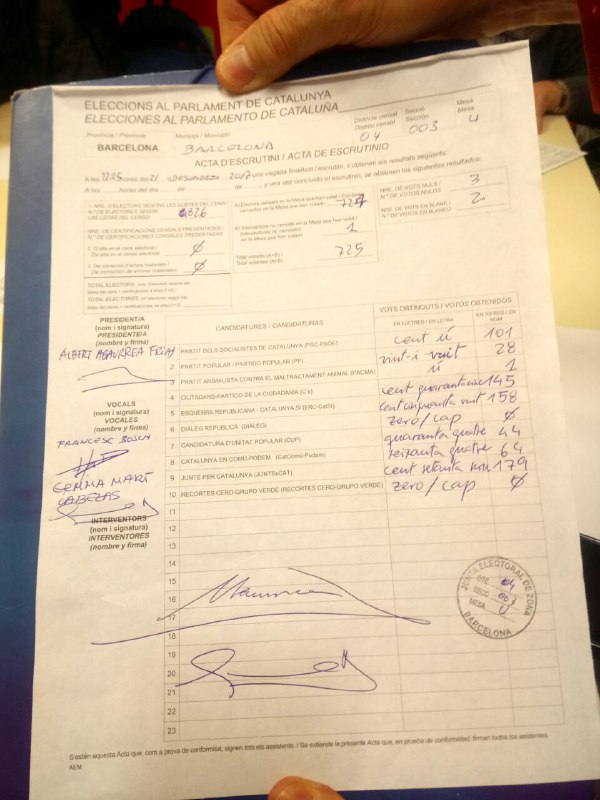 ELECCIONS AL PARLAMENT DE CATALUNYA
ELECCIONES AL PARLAMENTO DE CATALUÑA
Província / Provincia
BARCELONA
Municipi / Municipio
BARCELONA
Districte censal
Distrito censal
04
Secció
Sección
003
Mesa
Mesa
U
ACTA D'ESCRUTINI / ACTA DE ESCRUTINIO
A les 22:05 hores del 21 2017 una vegada finalitzat l'escrutini, s'obtenen els resultats següents:
A las hores del día de de , y una vez concluido el escrutinio, se obtienen los siguientes resultados:
1. NRE. D'ELECTORS SEGONS LES LLISTES DEL CENS /
N.º DE ELECTORES SEGÚN
LAS LISTAS DEL CENSO
NRE. DE CERTIFICACIONS CENSALS PRESENTADES /
N.º DE CERTIFICACIONES CENSALES PRESENTADAS
2. D'alta en el cens electoral /
De alta en el censo electoral
Ø
3. De correcció d'errors materials /
De corrección de errores materiales
Ø
TOTAL ELECTORS
TOTAL ELECTORES
A) Electors censats en la Mesa que han votat / Electores
censados en la Mesa que han votado
724
B) Interventors no censats en la Mesa que han votat /
Interventores no censados
en la Mesa que han votado
1
Total votants (A+B) /
Total votantes (A+B)
725
NRE. DE VOTS NULS /
N.º DE VOTOS NULOS
3
NRE. DE VOTS EN BLANC /
N.º DE VOTOS EN BLANCO
2
PRESIDENT/A
(nom i signatura)
PRESIDENTE/A
(nombre y firma)
VOCALS
(nom i signatura)
VOCALES
(nombre y firma)
FRANCESC BOSCH
GEMMA MARTÍ
CABEZAS
INTERVENTORS
(nom i signatura)
INTERVENTORES
(nombre y firma)
CANDIDATURES / CANDIDATURAS
VOTS OBTINGUTS / VOTOS OBTENIDOS
EN LLETRES / EN LETRA
EN XIFRES / EN NÚM
1 PARTIT DELS SOCIALISTES DE CATALUNYA (PSC-PSOE) cent ú 101
2 PARTIT POPULAR / PARTIDO POPULAR (PP) vint-i-vuit 28
3 PARTIT ANIMALISTA CONTRA EL MALTRACTAMENT ANIMAL (PACMA) ú 1
4 CIUTADANS-PARTIDO DE LA CIUDADANÍA (C's) cent quaranta cinc 145
5 ESQUERRA REPUBLICANA - CATALUNYA SÍ (ERC-CatSí) cent cinquanta vuit 158
6 DIÀLEG REPUBLICÀ (DIÀLEG) zero/cap Ø
7 CANDIDATURA D'UNITAT POPULAR (CUP) quaranta quatre 44
8 CATALUNYA EN COMÚ-PODEM (CatComú-Podem) seixanta quatre 64
9 JUNTS PER CATALUNYA (JUNTSxCAT) cent setanta nou 179
10 RECORTES CERO-GRUPO VERDE (RECORTES CERO-GRUPO VERDE) zero/cap Ø
11
12
13
14
15
16
17
18
19
20
21
22
23
JUNTA ELECTORAL DE ZONA
DTE. 04
SECC. 003
MESA U
BARCELONA
S'estén aquesta Acta que, com a prova de conformitat, signen tots els assistents. / Se extiende la presente Acta que, en prueba de conformidad, firman todos los asistentes.
AEM